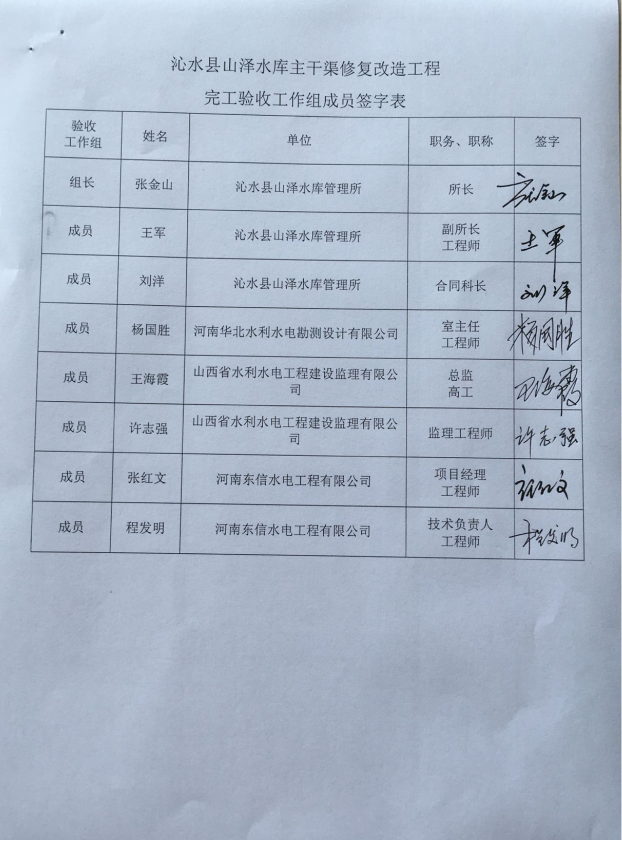 沁水县山泽水库主干渠修复改造工程
完工验收工作组成员签字表
验收
工作组
姓名
单位
职务、职称
签字
组长
张金山
沁水县山泽水库管理所
所长
张金山
成员
王军
沁水县山泽水库管理所
副所长
工程师
王軍
成员
刘洋
沁水县山泽水库管理所
合同科长
刘洋
成员
杨国胜
河南华北水利水电勘测设计有限公司
室主任
工程师
杨国胜
成员
王海霞
山西省水利水电工程建设监理有限公
司
总监
高工
王海霞
成员
许志强
山西省水利水电工程建设监理有限公
司
监理工程师
许志强
成员
张红文
河南东信水电工程有限公司
项目经理
工程师
张红文
成员
程发明
河南东信水电工程有限公司
技术负责人
工程师
程发明